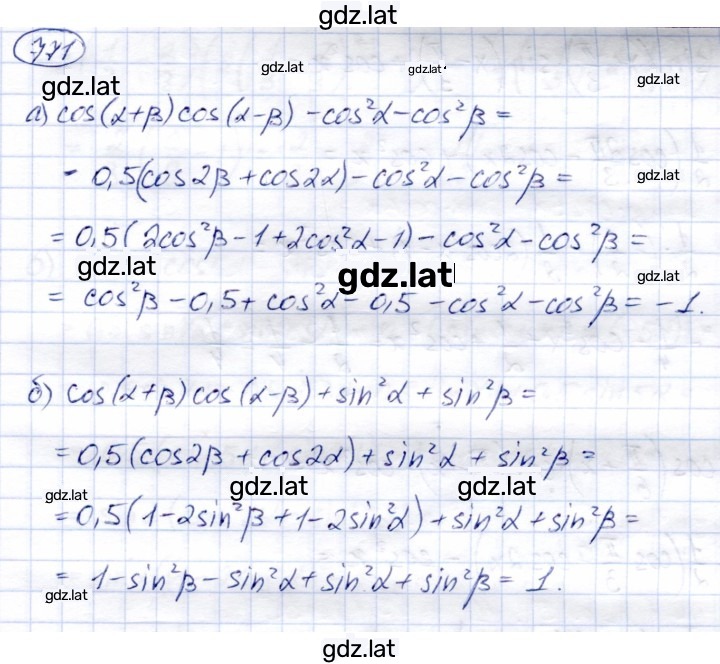 gdz.lat
771
gdz.lat gdz.lat gdz.lat gdz.lat
а) cos(α+β)cos(α-β) - cos²α - cos²β =
- 0,5(cos2β + cos2α) - cos²α - cos²β = gdz.lat
= 0,5(2cos²β - 1 + 2cos²α - 1) - cos²α - cos²β =
gdz.lat gdz.lat gdz.lat
= cos²β - 0,5 + cos²α - 0,5 - cos²α - cos²β = -1.
б) cos(α+β)cos(α-β) + sin²α + sin²β =
= 0,5(cos2β + cos2α) + sin²α + sin²β =
gdz.lat gdz.lat gdz.lat
= 0,5(1 - 2sin²β + 1 - 2sin²α) + sin²α + sin²β =
= 1 - sin²β - sin²α + sin²α + sin²β = 1.
gdz.lat
gdz.lat